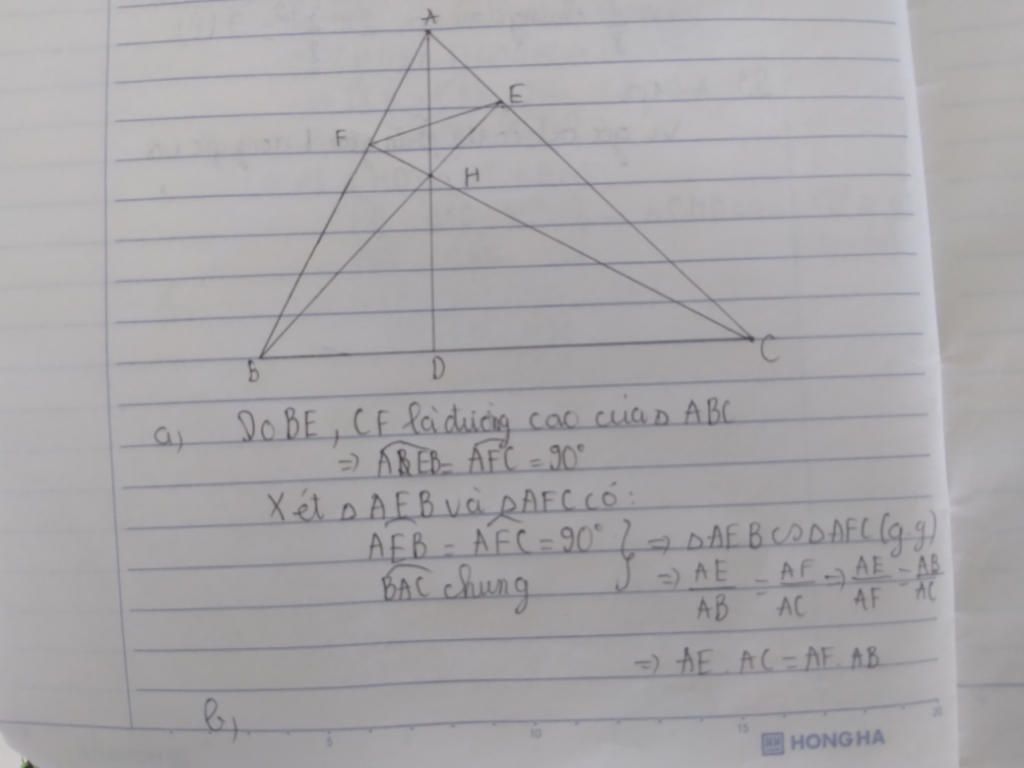 A
E
F
H
B
D
C
a, Do BE, CF là đường cao của △ ABC
=> AEB = AFC = 90°
Xét △ AEB và △AFC có:
AEB = AFC = 90° } => △AEB ∽ △AFC (g.g)
BAC chung } => AE/AB = AF/AC => AE/AF = AB/AC
=> AE . AC = AF . AB
b,
5 10 15 20
HONG HA